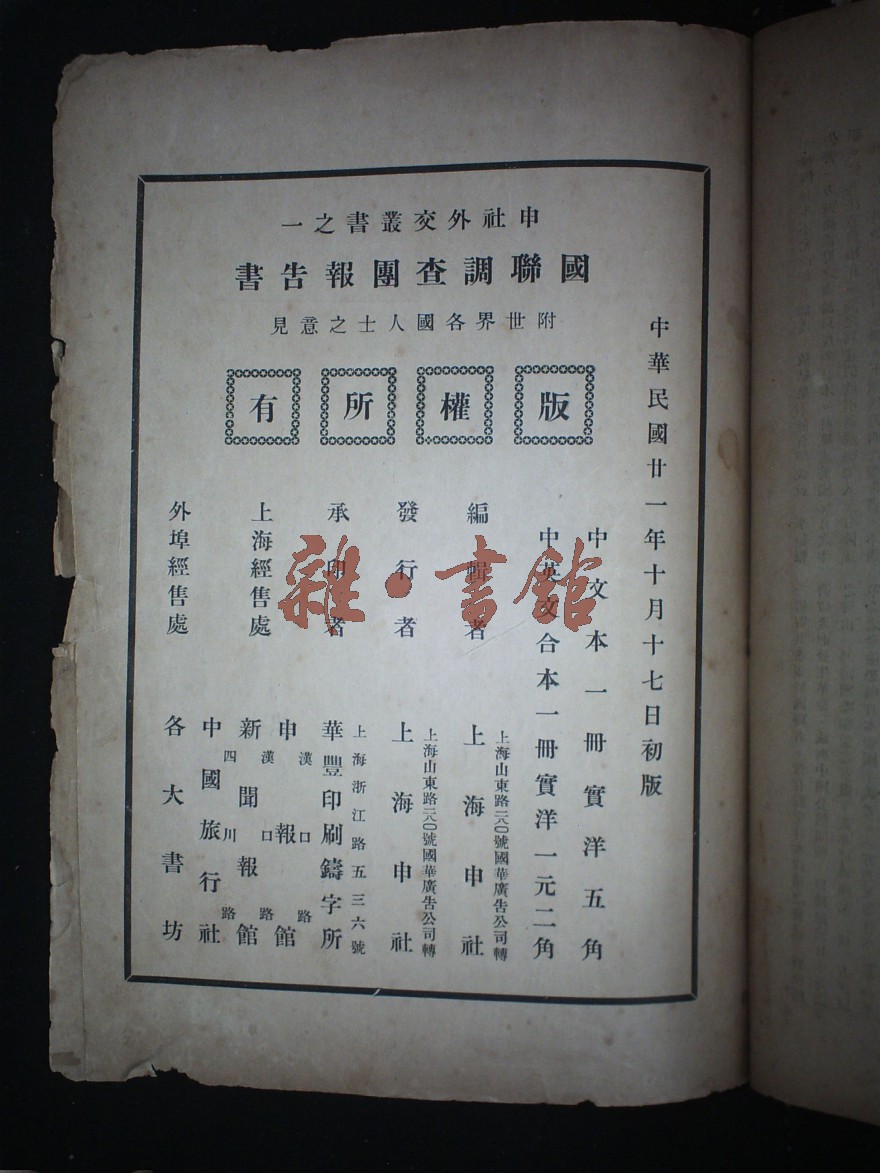 申社外交叢書之一
國聯調查團報告書
附世界各國人士之意見
版權所有
中華民國廿一年十月十七日初版
中文本一冊實洋五角
中英文合本一冊實洋一元二角
編輯者
上海山東路二八〇號國華廣告公司轉
上海申社
發行者
上海山東路二八〇號國華廣告公司轉
上海申社
承印者
上海浙江路五三六號
華豐印刷鑄字所
上海經售處
漢口路
申報館
漢口路
新聞報館
四川路
中國旅行社
外埠經售處
各大書坊
雜·書館